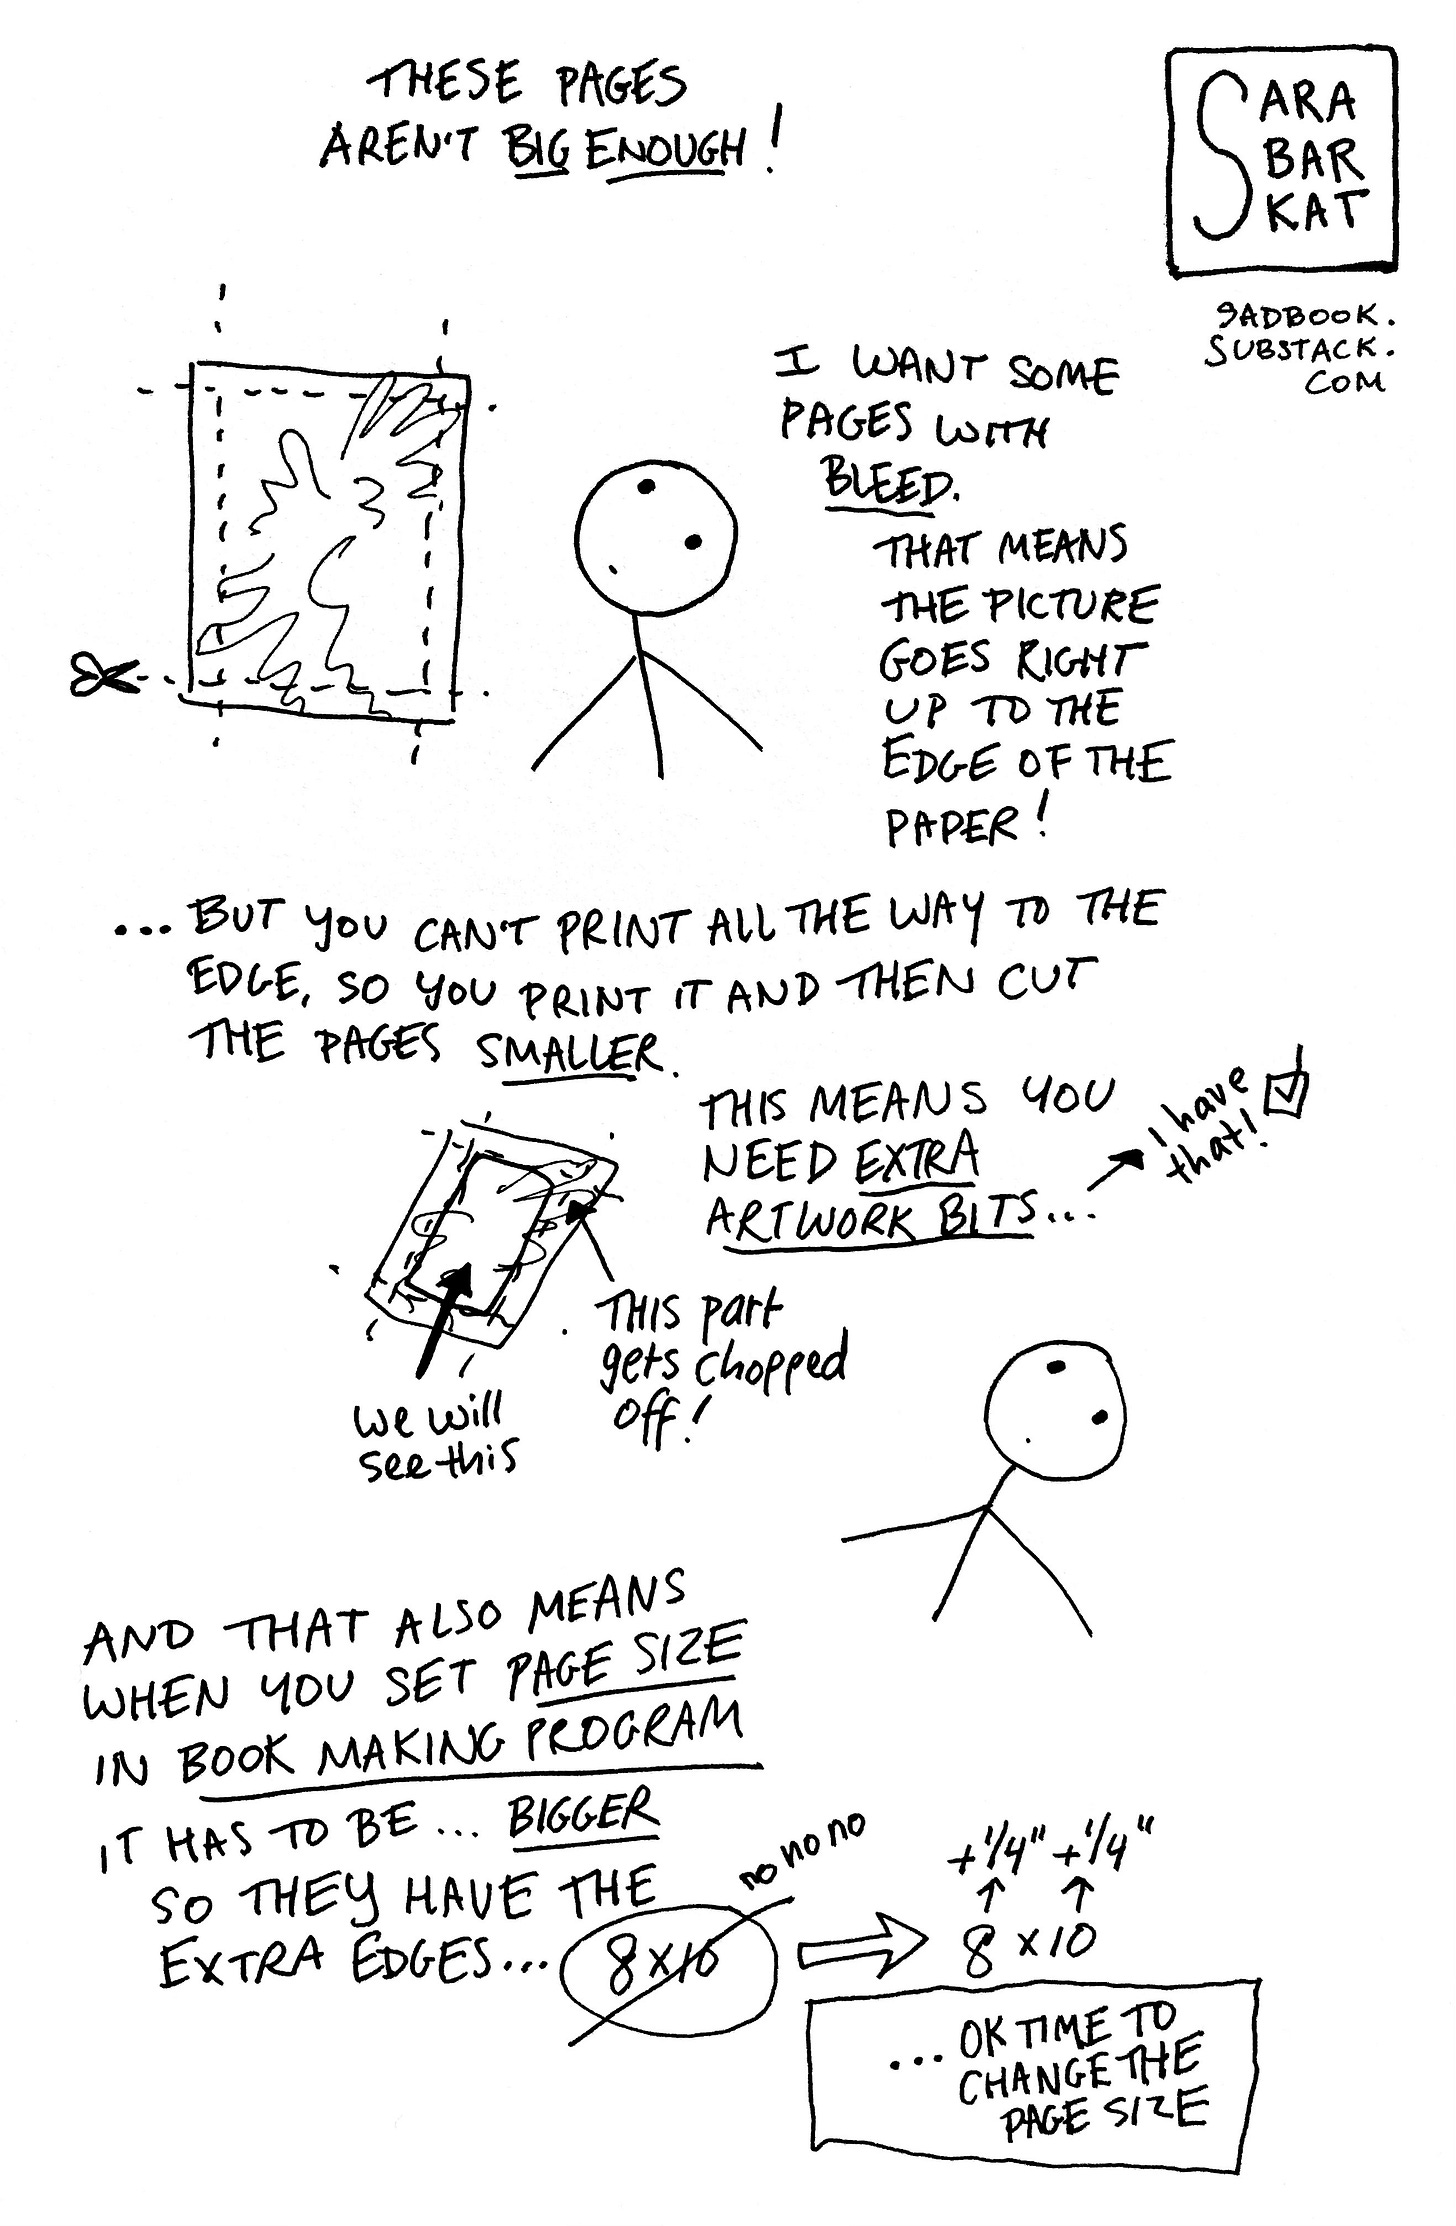 THESE PAGES
AREN'T BIG ENOUGH!
SARA
BAR
KAT
SADBOOK.
SUBSTACK.
COM
I WANT SOME
PAGES WITH
BLEED.
THAT MEANS
THE PICTURE
GOES RIGHT
UP TO THE
EDGE OF THE
PAPER!
... BUT YOU CAN'T PRINT ALL THE WAY TO THE
EDGE, SO YOU PRINT IT AND THEN CUT
THE PAGES SMALLER.
THIS MEANS YOU
NEED EXTRA
ARTWORK BITS...
I have
that!
THIS part
gets chopped
off!
we will
see this
AND THAT ALSO MEANS
WHEN YOU SET PAGE SIZE
IN BOOK MAKING PROGRAM
IT HAS TO BE... BIGGER
SO THEY HAVE THE
EXTRA EDGES...
8x10
no no no
+1/4" +1/4"
8 x 10
... OK TIME TO
CHANGE THE
PAGE SIZE